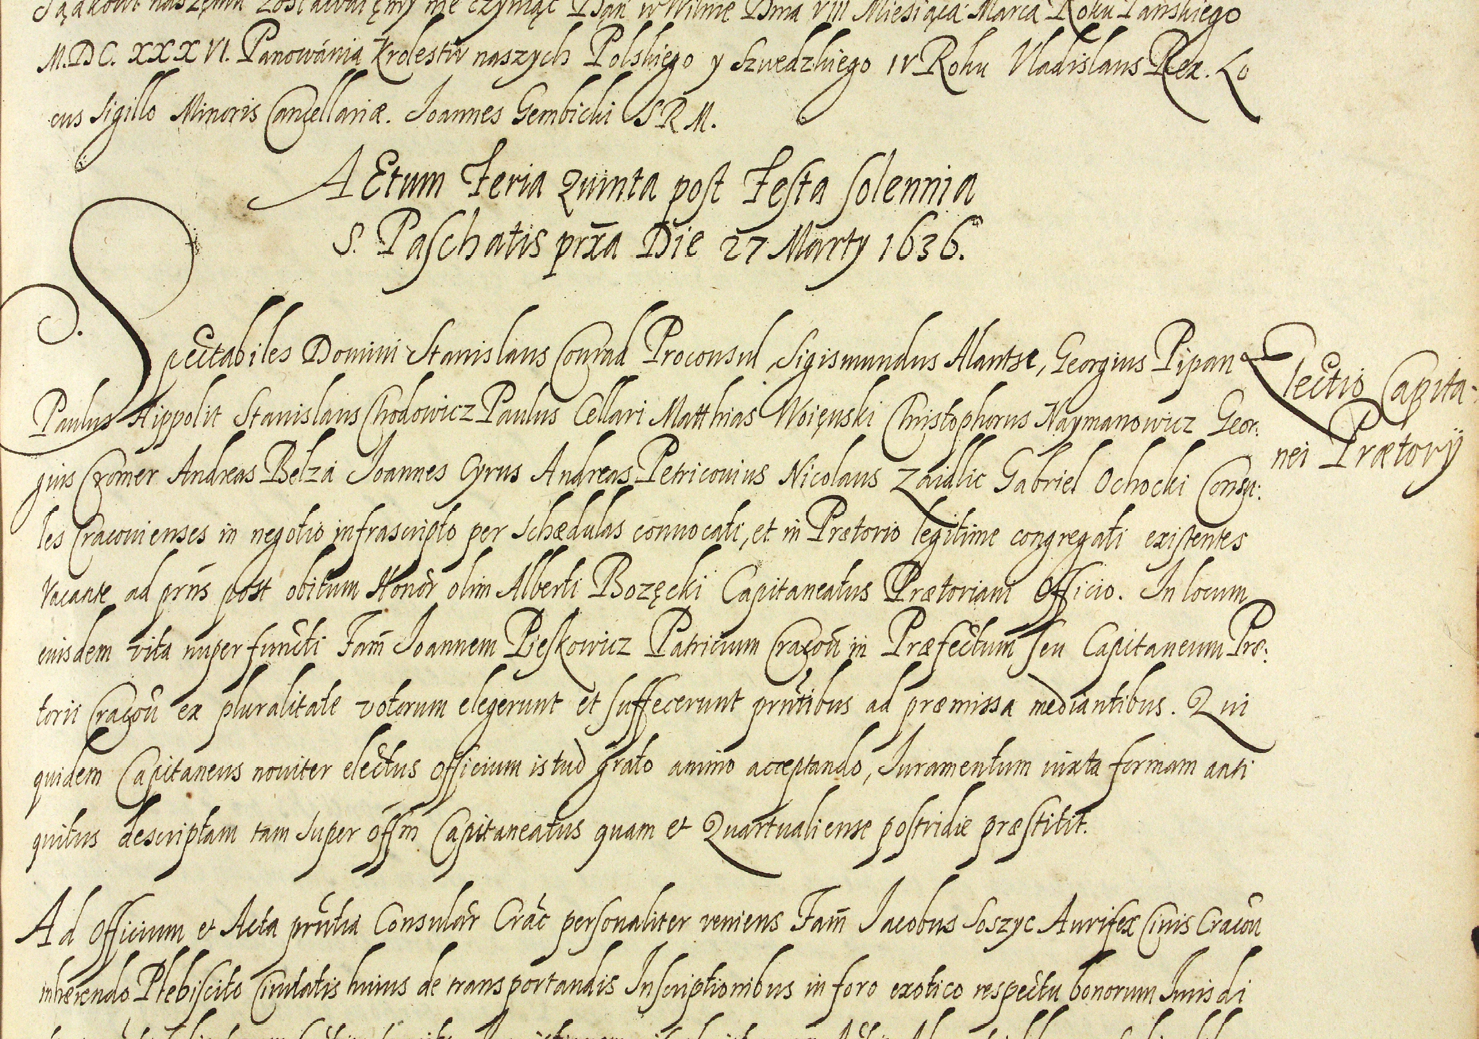 Sądkowi naszemu zostawuięmy nie czyniąc Dan w Wilnie Dnia VIII Miesiąca Marca Roku Panskiego
M.DC.XXXVI. Panowánia Krolestw naszych Polskiego y Szwedzkiego IV Roku Vladislaus Rex. Lo
cus Sigilli Minoris Cancellariæ. Joannes Gembicki SRM.
Actum Feria Quinta post Festa solennia
S. Paschatis prxã Die 27 Marty 1636.
Spectabiles Domini Stanislaus Conrad Proconsul, Sigismundus Alantse, Georgius Pipan
Paulus Hippolit Stanislaus Chodowicz Paulus Cellari Matthias Woięnski Christophorus Naymanowicz Geor:
gius Cromer Andreas Belza Joannes Cyrus Andreas Petricouius Nicolaus Zaidlic Gabriel Ochocki Consu:
les Cracouienses in negotio infrascripto per Schædulas conuocati, et in Prætorio legitime congregati existentes
Vacante ad prns̃ post obitum Honor̃ olim Alberti Bozęcki Capitaneatus Prætoriani Officio. In locum
eiusdem vita nuper functi Fam̃ Joannem Pieskowicz Patricium Cracou̇̃ in Præfectum seu Capitaneum Præ:
torii Cracou̇̃ ex pluralitate votorum elegerunt et suffecerunt prñtibus ad præmissa mediantibus. Qui
quidem Capitaneus nouiter electus officium istud grato animo acceptando, Juramentum iuxta formam anti
quitus descriptam tam super offm̃ Capitaneatus quam et Quartualiense postridie præstitit.
Electio Capita-
nei Prætorÿ
Ad Officium et Acta prñtia Consular̃ Crac̃ personaliter veniens Fam̃ Jacobus Soszyc Aurifex Ciuis Cracou̇̃
inhærendo Plebiscito Ciuitatis huius de transportandis Inscriptionibus in foro exotico respectu bonorum Jurisdi